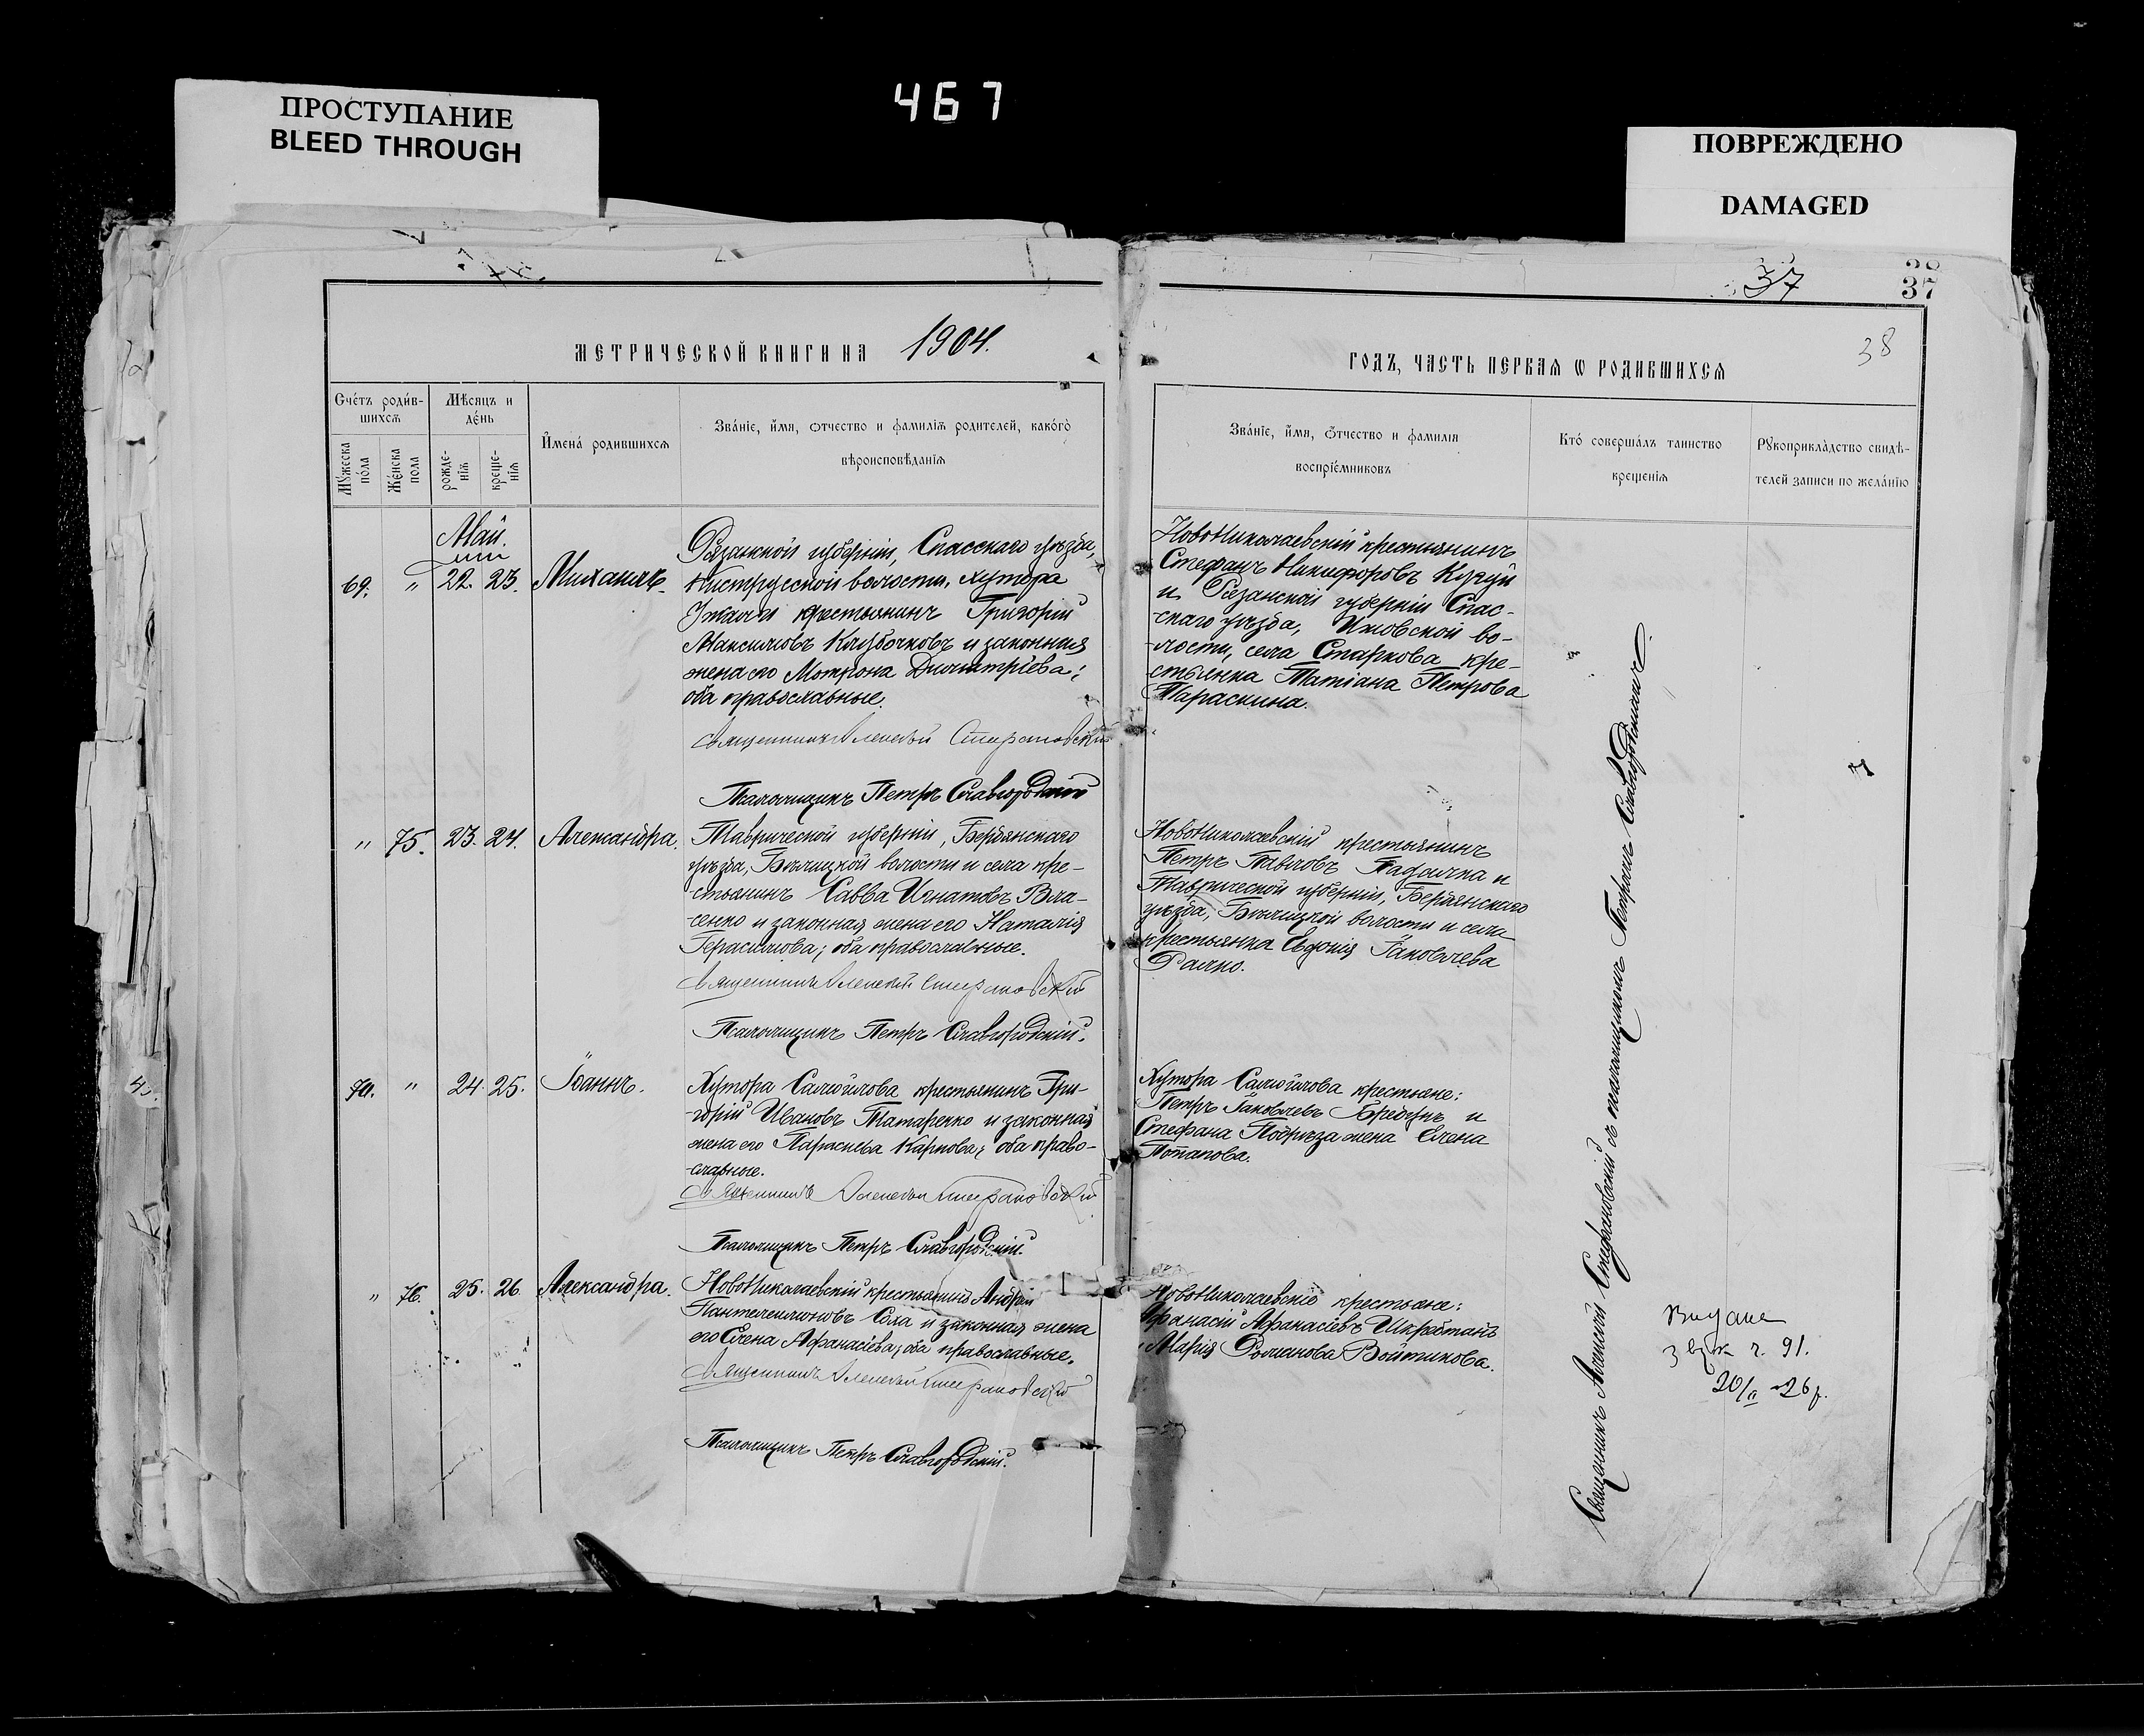 467
ПРОСТУПАНИЕ
BLEED THROUGH
ПОВРЕЖДЕНО
DAMAGED
37
37
38
МЕТРИЧЕСКОЙ КНИГИ НА 1904.
ГОДЪ, ЧАСТЬ ПЕРВАЯ Ѡ РОДИВШИХСЯ
Счетъ родив-
шихся
Мѣсяцъ и
день
Мужеска
пола
Женска
пола
рожде-
нія
креще-
нія
Имена родившихся
Званіе, имя, отчество и фамилія родителей, какого
вѣроисповѣданія
Званіе, имя, отчество и фамилія
воспріемниковъ
Кто совершалъ таинство
крещенія
Рукоприкладство свидѣ-
телей записи по желанію
Май.
69. " 22. 23. Михаилъ.
Рязанской губерніи, Спасскаго уѣзда,
волости, хутора
крестьянинъ Григорій
Максимовъ Клубочковъ и законная
жена его Мотрона Димитріева;
оба православные.
Священникъ Алексѣй Стефановскій
Псаломщикъ Петръ Славгородскій
НовоНиколаевскій крестьянинъ
Стефанъ Никифоровъ
и Рязанской губерніи Спас-
скаго уѣзда, Ижовской во-
лости, села Старкова кре-
стьянка Татіана Петрова
Параскина.
" 75. 23. 24. Александра.
Таврической губерніи, Бердянскаго
уѣзда, волости и села кре-
стьянинъ Савва Игнатовъ Вла-
сенко и законная жена его Наталія
Герасимова; оба православные.
Священникъ Алексѣй Стефановскій
Псаломщикъ Петръ Славгородскій.
НовоНиколаевскій крестьянинъ
Петръ Павловъ и
Таврической губерніи, Бердянскаго
уѣзда, волости и села
крестьянка Евдокія Іаковлева
70. " 24. 25. Іоаннъ.
Хутора Самойлова крестьянинъ Гри-
горій Ивановъ Татаренко и законная
жена его Параскева Карпова; оба право-
славные.
Священникъ Алексѣй Стефановскій
Псаломщикъ Петръ Славгородскій.
Хутора Самойлова крестьяне:
Петръ Іаковлевъ и
Стефана Подрѣза жена Елена
Потапова.
" 76. 25. 26. Александра.
НовоНиколаевскій крестьянинъ Андрей
Пантелеимоновъ и законная жена
его Елена Афанасіева; оба православные.
Священникъ Алексѣй Стефановскій
Псаломщикъ Петръ Славгородскій.
НовоНиколаевскіе крестьяне:
Афанасій Афанасіевъ
Марія Романова Войтикова.
Священникъ Алексѣй Стефановскій съ псаломщикомъ Петромъ Славгородскимъ.
ч. 91.